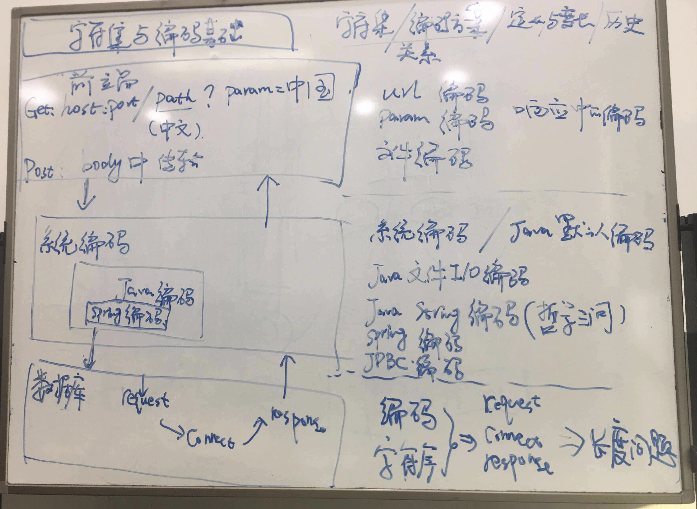 字符集与编码基础
字符集/编码方案/定义与变长/历史
关系
前端
Get: host:port/path? param=中国
(中文)
Post: body中 传输
url 编码
param 编码 响应中的编码
文件编码
系统编码
Java 编码
Spring 编码
系统编码 / Java 默认编码
Java 文件 I/O 编码
Java String 编码(哲学三问)
Spring 编码
JDBC 编码
数据库
request
connect
response
编码
字符集
request
connect
response
长度问题